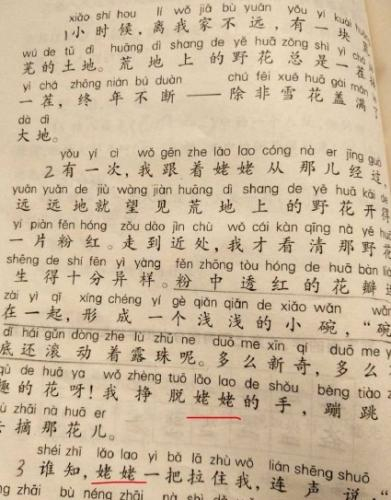 xiǎo shí hou lí wǒ jiā bù yuǎn yǒu yí kuài
1小时候，离我家不远，有一块
wú de tǔ dì huāng dì shang de yě huā zǒng shì yì chá
芜的土地。荒地上的野花总是一茬
yì chá zhōng nián bú duàn chú fēi xuě huā gài mǎn
一茬，终年不断——除非雪花盖满了
dà dì
大地。
yǒu yí cì wǒ gēn zhe lǎo lao cóng nà er jīng guò
2有一次，我跟着姥姥从那儿经过，
yuǎn yuǎn de jiù wàng jiàn huāng dì shang de yě huā kāi dé
远远地就望见荒地上的野花开得
yí piàn fěn hóng zǒu dào jìn chù wǒ cái kàn qīng nà yě huā
一片粉红。走到近处，我才看清那野花
shēng de shí fēn yì yàng fěn zhōng tòu hóng de huā bàn
生得十分异样。粉中透红的花瓣
zài yì qǐ xíng chéng yí gè qiǎn qiǎn de xiǎo wǎn
在一起，形成一个浅浅的小碗，“碗
dǐ hái gǔn dòng zhe lù zhū ne duō me xīn qí duō me
底还滚动着露珠呢。多么新奇，多么
qù de huā ya wǒ zhèng tuō lǎo lao de shǒu bèng tiào
趣的花呀！我挣脱姥姥的手，蹦跳
qù zhāi nà huā er
去摘那花儿。
shéi zhī lǎo lao yì bǎ lā zhù wǒ lián shēng shuō
3谁知，姥姥一把拉住我，连声说，“
bù néng zhāi